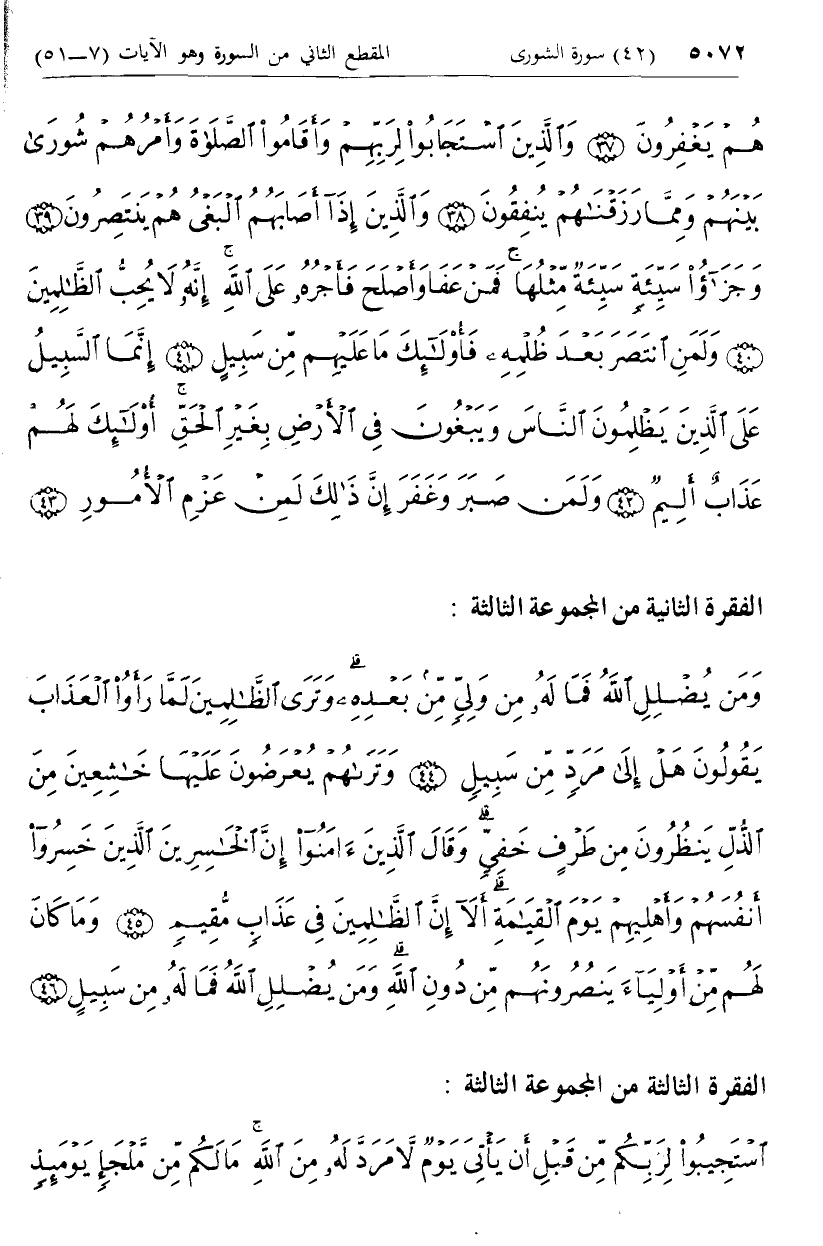 ٥٠٧٢ (٤٢) سورة الشورى المقطع الثاني من السورة وهو الآيات (٧ــ٥١)
هُمْ يَغْفِرُونَ ٣٧ وَٱلَّذِينَ ٱسْتَجَابُوا۟ لِرَبِّهِمْ وَأَقَامُوا۟ ٱلصَّلَوٰةَ وَأَمْرُهُمْ شُورَىٰ
بَيْنَهُمْ وَمِمَّا رَزَقْنَٰهُمْ يُنفِقُونَ ٣٨ وَٱلَّذِينَ إِذَآ أَصَابَهُمُ ٱلْبَغْىُ هُمْ يَنتَصِرُونَ ٣٩
وَجَزَٰٓؤُا۟ سَيِّئَةٍ سَيِّئَةٌ مِّثْلُهَا ۖ فَمَنْ عَفَا وَأَصْلَحَ فَأَجْرُهُۥ عَلَى ٱللَّهِ ۚ إِنَّهُۥ لَا يُحِبُّ ٱلظَّٰلِمِينَ
٤٠ وَلَمَنِ ٱنتَصَرَ بَعْدَ ظُلْمِهِۦ فَأُو۟لَٰٓئِكَ مَا عَلَيْهِم مِّن سَبِيلٍ ٤١ إِنَّمَا ٱلسَّبِيلُ
عَلَى ٱلَّذِينَ يَظْلِمُونَ ٱلنَّاسَ وَيَبْغُونَ فِى ٱلْأَرْضِ بِغَيْرِ ٱلْحَقِّ ۚ أُو۟لَٰٓئِكَ لَهُمْ
عَذَابٌ أَلِيمٌ ٤٢ وَلَمَن صَبَرَ وَغَفَرَ إِنَّ ذَٰلِكَ لَمِنْ عَزْمِ ٱلْأُمُورِ ٤٣
الفقرة الثانية من المجموعة الثالثة :
وَمَن يُضْلِلِ ٱللَّهُ فَمَا لَهُۥ مِن وَلِىٍّ مِّنۢ بَعْدِهِۦ ۗ وَتَرَى ٱلظَّٰلِمِينَ لَمَّا رَأَوُا۟ ٱلْعَذَابَ
يَقُولُونَ هَلْ إِلَىٰ مَرَدٍّ مِّن سَبِيلٍ ٤٤ وَتَرَىٰهُمْ يُعْرَضُونَ عَلَيْهَا خَٰشِعِينَ مِنَ
ٱلذُّلِّ يَنظُرُونَ مِن طَرْفٍ خَفِىٍّ ۗ وَقَالَ ٱلَّذِينَ ءَامَنُوٓا۟ إِنَّ ٱلْخَٰسِرِينَ ٱلَّذِينَ خَسِرُوٓا۟
أَنفُسَهُمْ وَأَهْلِيهِمْ يَوْمَ ٱلْقِيَٰمَةِ ۗ أَلَآ إِنَّ ٱلظَّٰلِمِينَ فِى عَذَابٍ مُّقِيمٍ ٤٥ وَمَا كَانَ
لَهُم مِّنْ أَوْلِيَآءَ يَنصُرُونَهُم مِّن دُونِ ٱللَّهِ ۗ وَمَن يُضْلِلِ ٱللَّهُ فَمَا لَهُۥ مِن سَبِيلٍ ٤٦
الفقرة الثالثة من المجموعة الثالثة :
ٱسْتَجِيبُوا۟ لِرَبِّكُم مِّن قَبْلِ أَن يَأْتِىَ يَوْمٌ لَّا مَرَدَّ لَهُۥ مِنَ ٱللَّهِ ۚ مَا لَكُم مِّن مَّلْجَإٍ يَوْمَئِذٍ